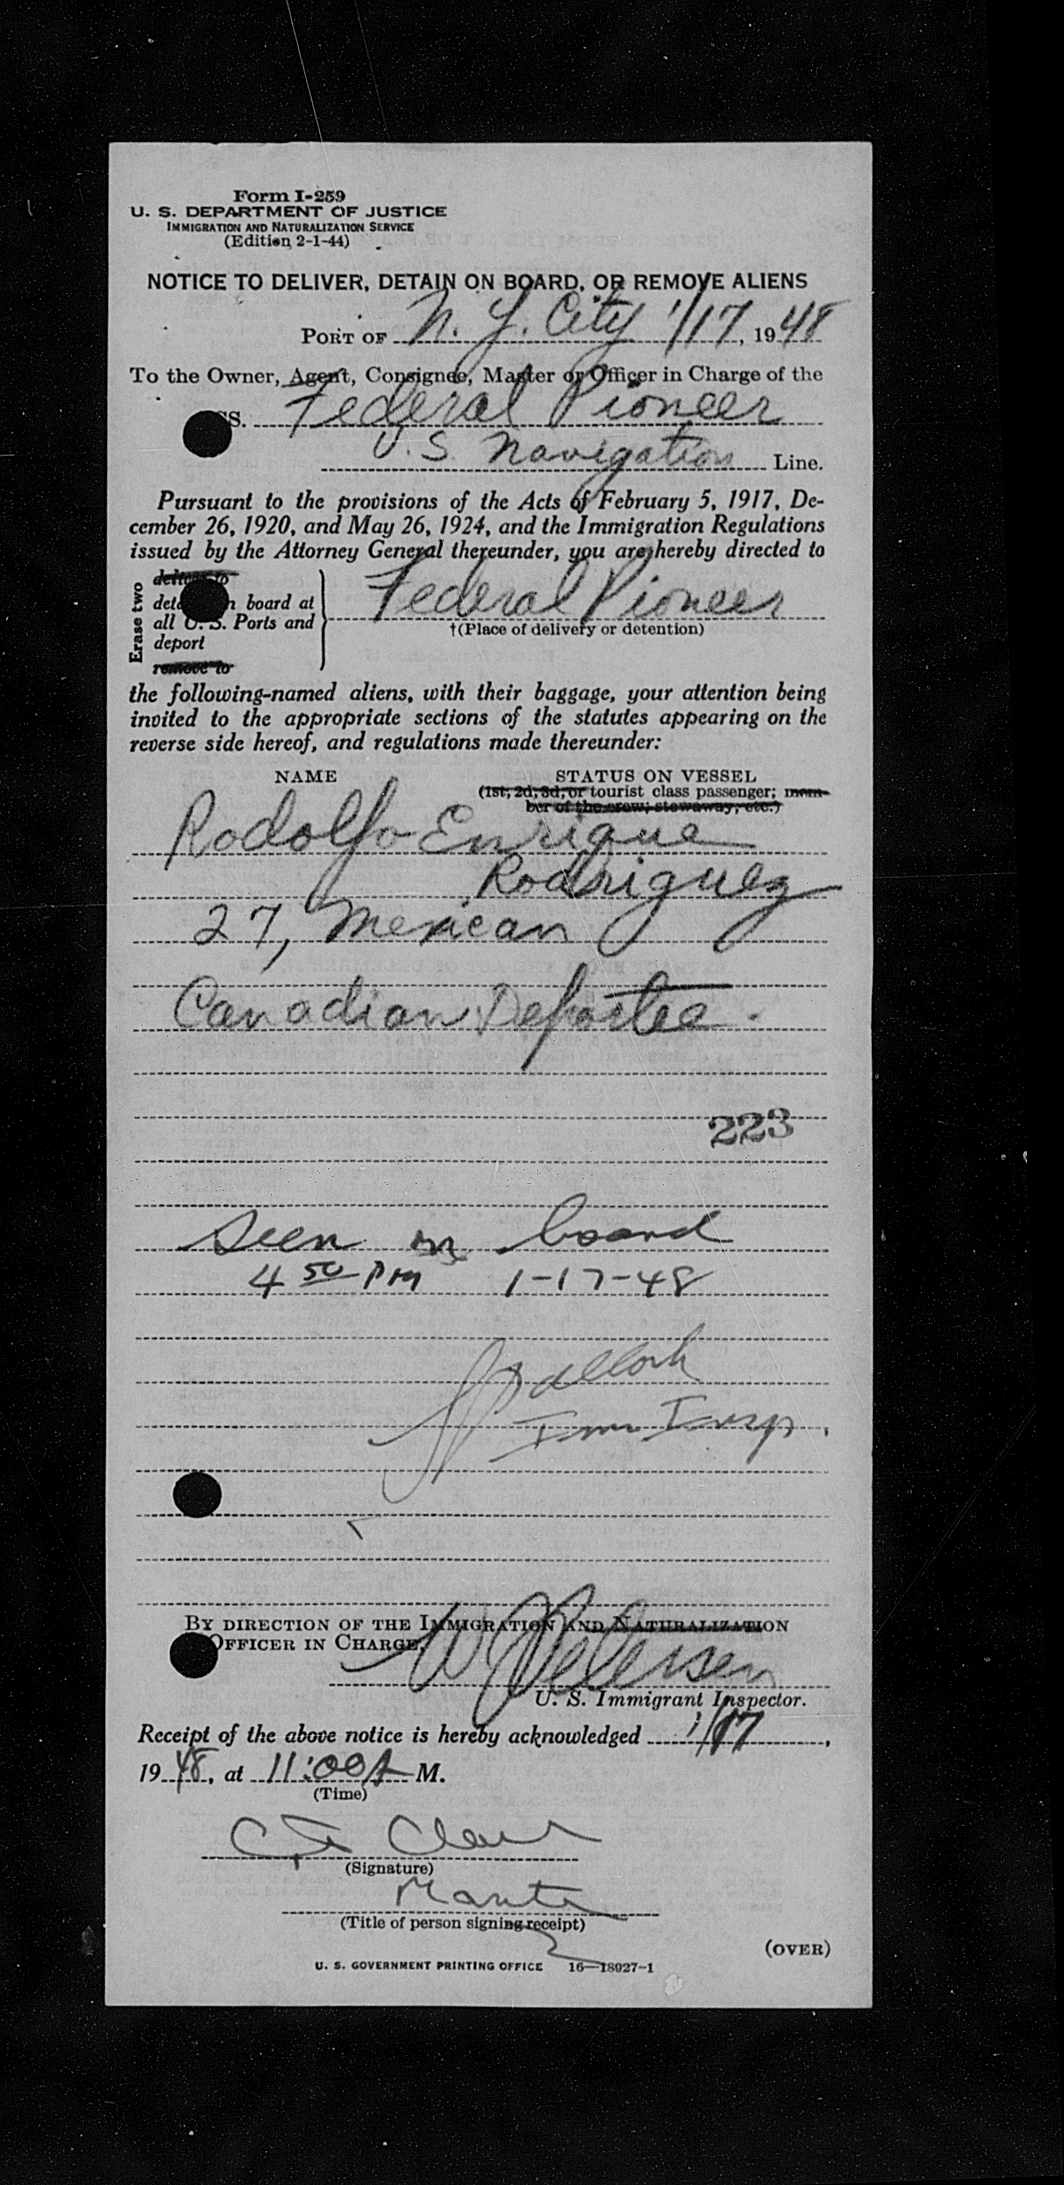 Form I-259
U. S. DEPARTMENT OF JUSTICE
IMMIGRATION AND NATURALIZATION SERVICE
(Edition 2-1-44)
NOTICE TO DELIVER, DETAIN ON BOARD, OR REMOVE ALIENS
PORT OF N. Y. City 1/17, 1948
To the Owner, Agent, Consignee, Master or Officer in Charge of the
SS. Federal Pioneer
U.S. Navigation Line.
Pursuant to the provisions of the Acts of February 5, 1917, De-
cember 26, 1920, and May 26, 1924, and the Immigration Regulations
issued by the Attorney General thereunder, you are hereby directed to
Erase two
deliver to
board at
all U. S. Ports and
deport
remove to
Federal Pioneer
†(Place of delivery or detention)
the following-named aliens, with their baggage, your attention being
invited to the appropriate sections of the statutes appearing on the
reverse side hereof, and regulations made thereunder:
NAME STATUS ON VESSEL
(1st, 2d, 3d, or tourist class passenger; mem-
ber of the crew; stowaway, etc.)
Rodolfo Enrique
Rodriguez
27, Mexican
Canadian Deportee.
223
Seen on board
4 50 PM 1-17-48
Imm Insp.
BY DIRECTION OF THE IMMIGRATION AND NATURALIZATION
OFFICER IN CHARGE,
W Petersen
U. S. Immigrant Inspector.
Receipt of the above notice is hereby acknowledged 1/17,
1948, at 11:00 A M.
(Time)
Clark
(Signature)
Master
(Title of person signing receipt)
(OVER)
U. S. GOVERNMENT PRINTING OFFICE 16—18927-1